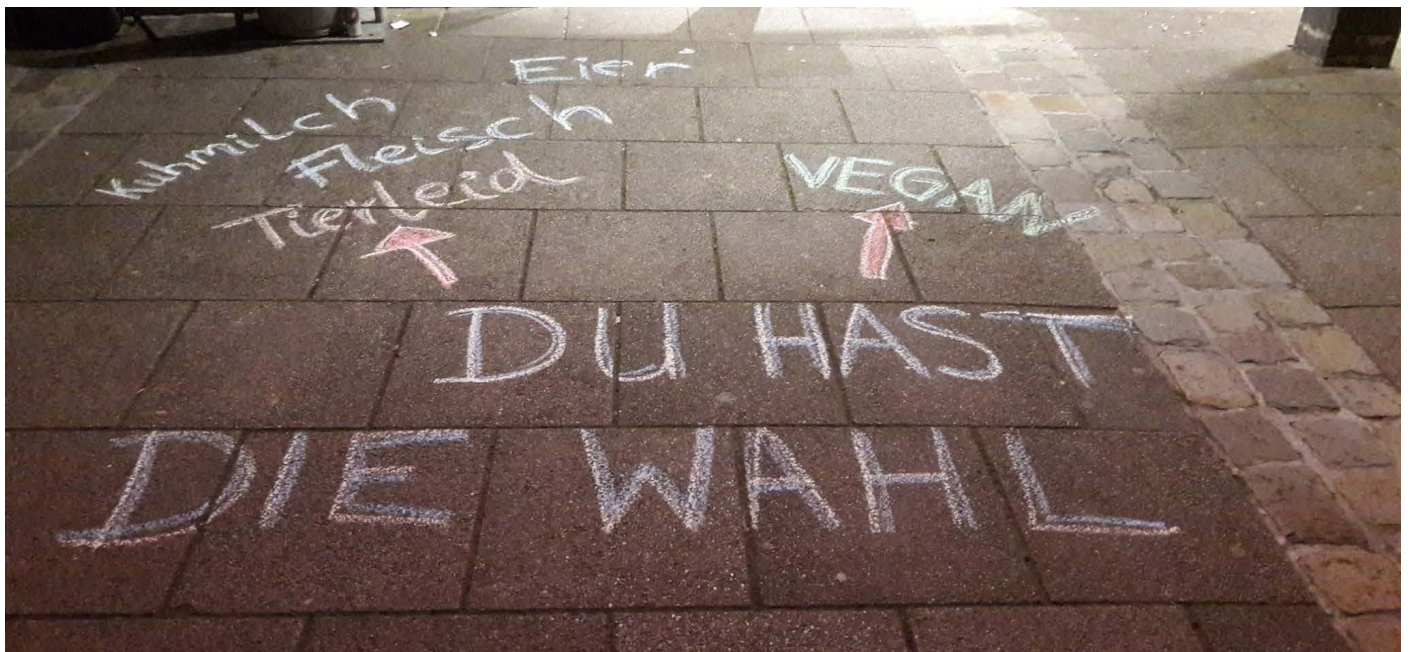 Eier
Kuhmilch
Fleisch
Tierleid
VEGAN
DU HAST
DIE WAHL